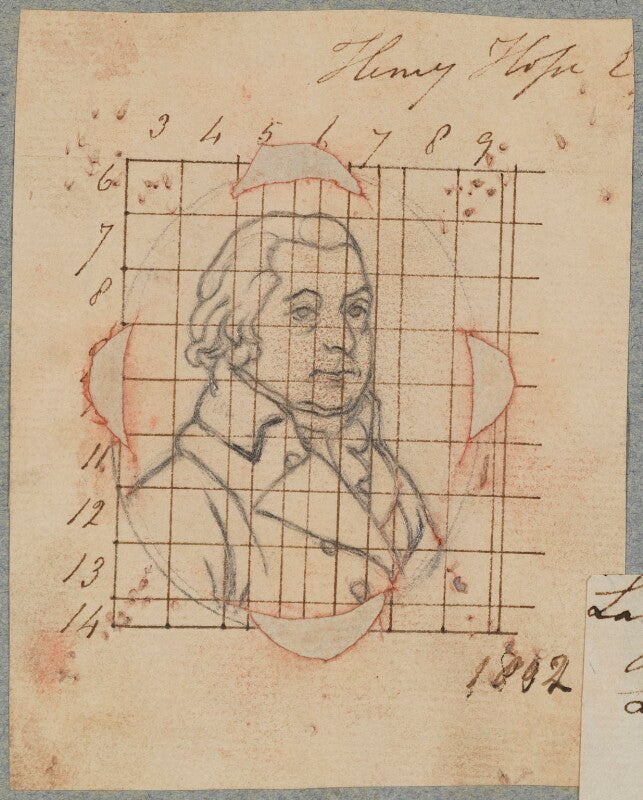 Henry Hope E
3 4 5 6 7 8 9
6
7
8
11
12
13
14
1802
La